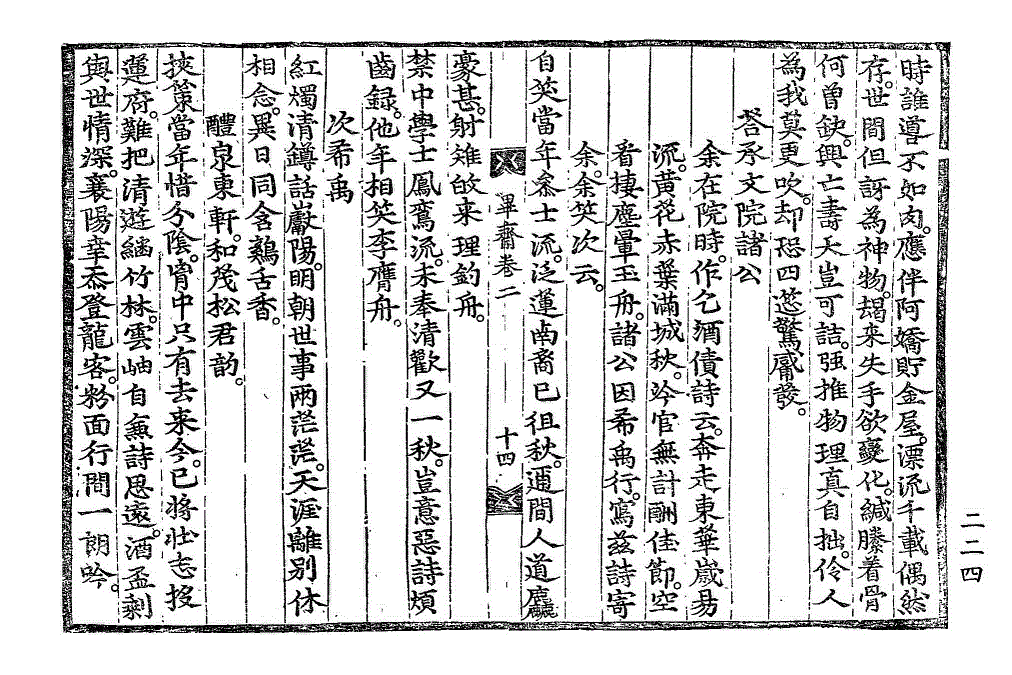 時誰導不如肉。應伴阿嬌貯金屋。漂流千載偶然
存。世間但訝為神物。朅来失手欲變化。緘縢着骨
何曾缺。興亡壽夭豈可詰。强推物理真自拙。伶人
為我莫更吹。却恐四莚驚觱發。
荅承文院諸公
余在院時。作乞酒債詩云。奔走東華歲易
流。黄花赤葉滿城秋。冷官無計酬佳節。空
看捿塵暈玉舟。諸公因希禹行。寫玆詩寄
余。余笑次云。
自笑當年忝士流。泛蓮南裔已徂秋。邇間人道麤
豪甚。射雉敀来理釣舟。
禁中學士鳳鸞流。未奉清歡又一秋。豈意惡詩煩
齒録。他年相笑李膺舟。
次希禹
紅燭清罇話巘陽。明朝世事兩茫茫。天涯離别休
相念。異日同含鷄舌香。
醴泉東軒。和茂松君韵。
挾策當年惜分陰。胷中只有去来今。已將壯志投
蓮府。難把清遊繼竹林。雲岫自兼詩思遠。酒盃剩
與世情深。襄陽幸忝登龍客。粉面行間一朗吟。
畢齋卷二
十四
二二四